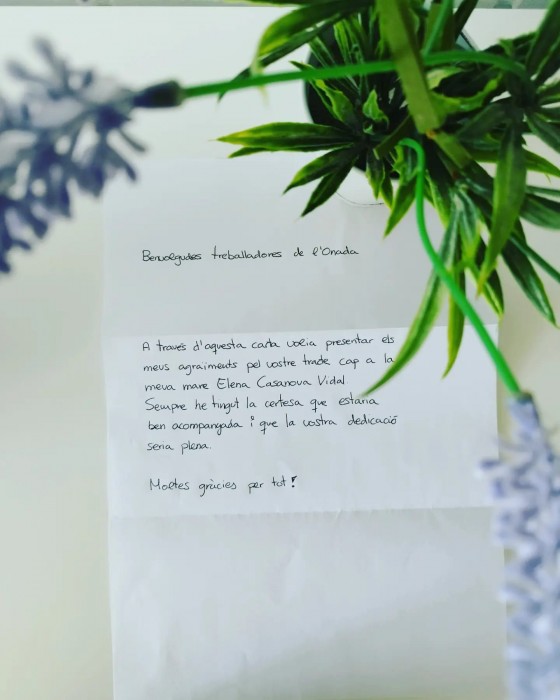 Benvolgudes treballadores de l'Onada
A través d'aquesta carta volia presentar els
meus agraiments pel vostre tracte cap a la
meva mare Elena Casanova Vidal
Sempre he tingut la certesa que estaria
ben acompanyada i que la vostra dedicació
seria plena.
Moltes gràcies per tot!